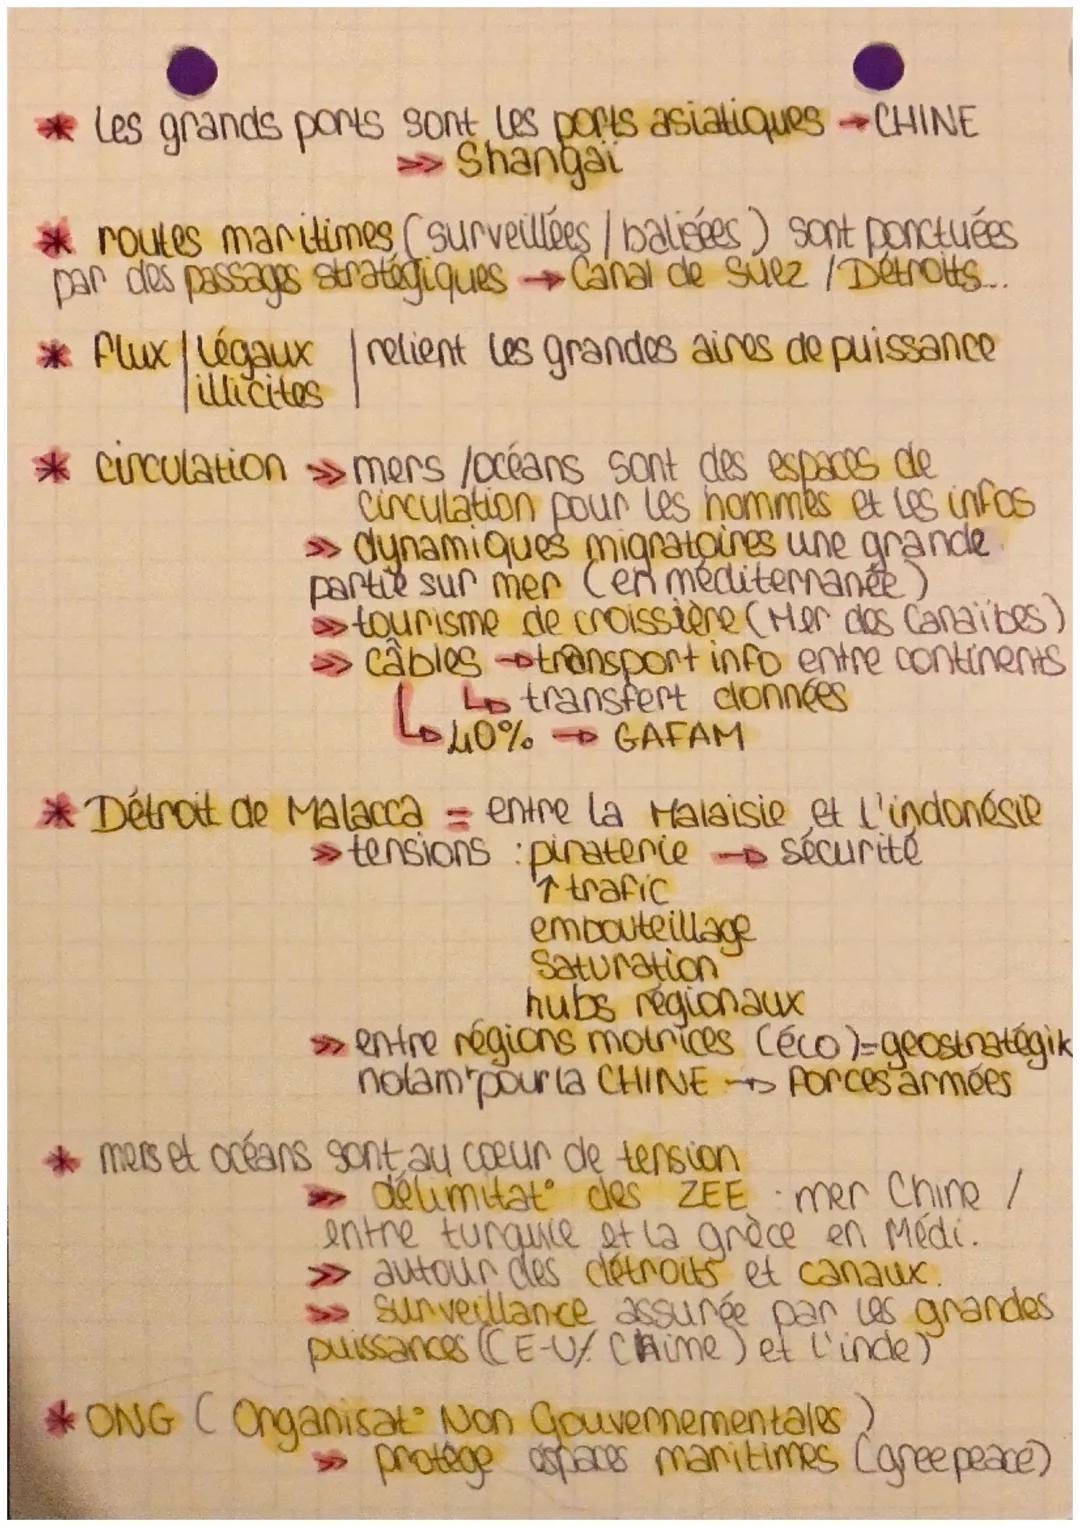 * Les grands ports sont les ports asiatiques → CHINE
>> Shangaï
* routes maritimes (surveillées / balisées) sont ponctuées
par des passages stratégiques → Canal de Suez / Détroits...
* Flux | Légaux | relient les grandes aires de puissance
| illicites |
* circulation >> mers /océans sont des espaces de
circulation pour les hommes et les infos
>> dynamiques migratoires une grande
partie sur mer (en méditerranée)
>> tourisme de croissière (Mer des Caraïbes)
>> câbles → transport info entre continents
↳ transfert données
↳ 40% → GAFAM
* Détroit de Malacca = entre la Malaisie et l'indonésie
>> tensions : piraterie → sécurité
↑ trafic
embouteillage
Saturation
hubs régionaux
>> entre régions motrices (éco)=geostratégik
notamt pour la CHINE → forces armées
* mers et océans sont au coeur de tension
>> délimitat° des ZEE : mer Chine /
entre turquie et la grèce en Médi.
>> autour des détroits et canaux.
>> surveillance assurée par les grandes
puissances (CE-U/ Chine) et l'inde)
* ONG ( Organisat° Non Gouvernementales )
>> protège espaces maritimes (greepeace)